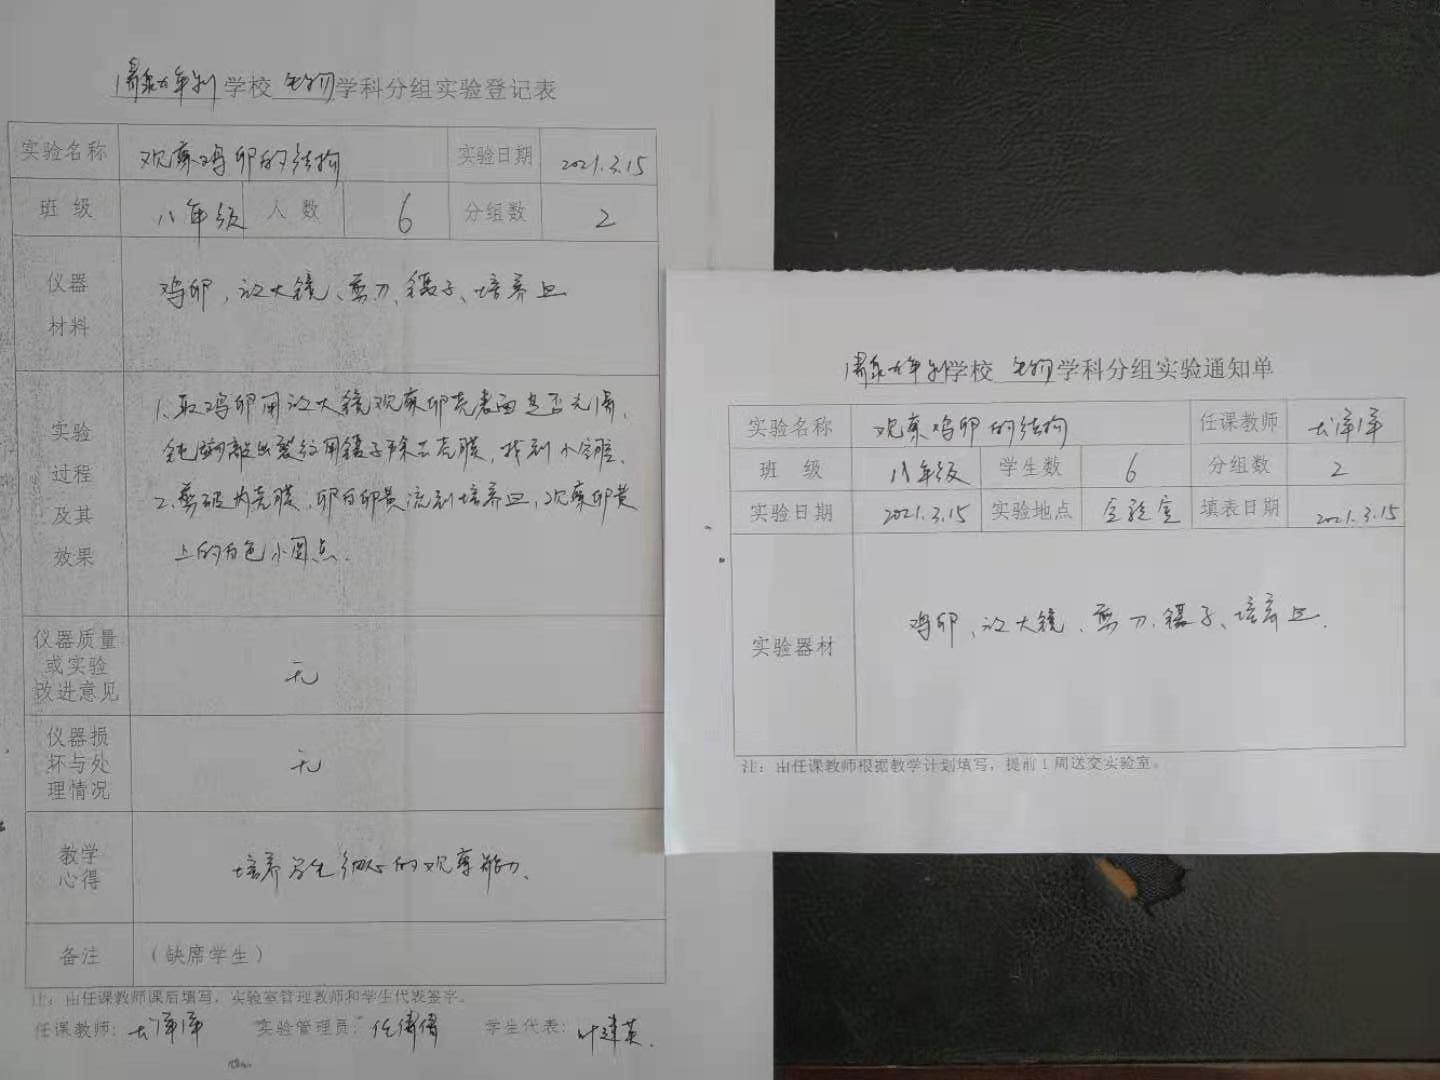 学校 生物学科分组实验登记表
实验名称 观察鸡卵的结构 实验日期 2021.3.15
班 级 八年级 人 数 6 分组数 2
仪器
材料
鸡卵、放大镜、剪刀、镊子、培养皿
实验
过程
及其
效果
1.取鸡卵用放大镜观察卵壳表面是否光滑、
敲出裂纹用镊子除去壳膜,找到小气腔、
2.剪破内壳膜,卵白卵黄流到培养皿,观察卵黄
上的白色小圆点.
仪器质量
或实验
改进意见
无
仪器损
坏与处
理情况
无
教学
心得
培养学生细心的观察能力、
备注 (缺席学生)
注:由任课教师课后填写,实验室管理教师和学生代表签字。
任课教师: 实验管理员:任倩倩 学生代表:叶建英.
学校 生物学科分组实验通知单
实验名称 观察鸡卵的结构 任课教师
班 级 八年级 学生数 6 分组数 2
实验日期 2021.3.15 实验地点 实验室 填表日期 2021.3.15
实验器材 鸡卵、放大镜、剪刀、镊子、培养皿.
注:由任课教师根据教学计划填写,提前1周送交实验室。